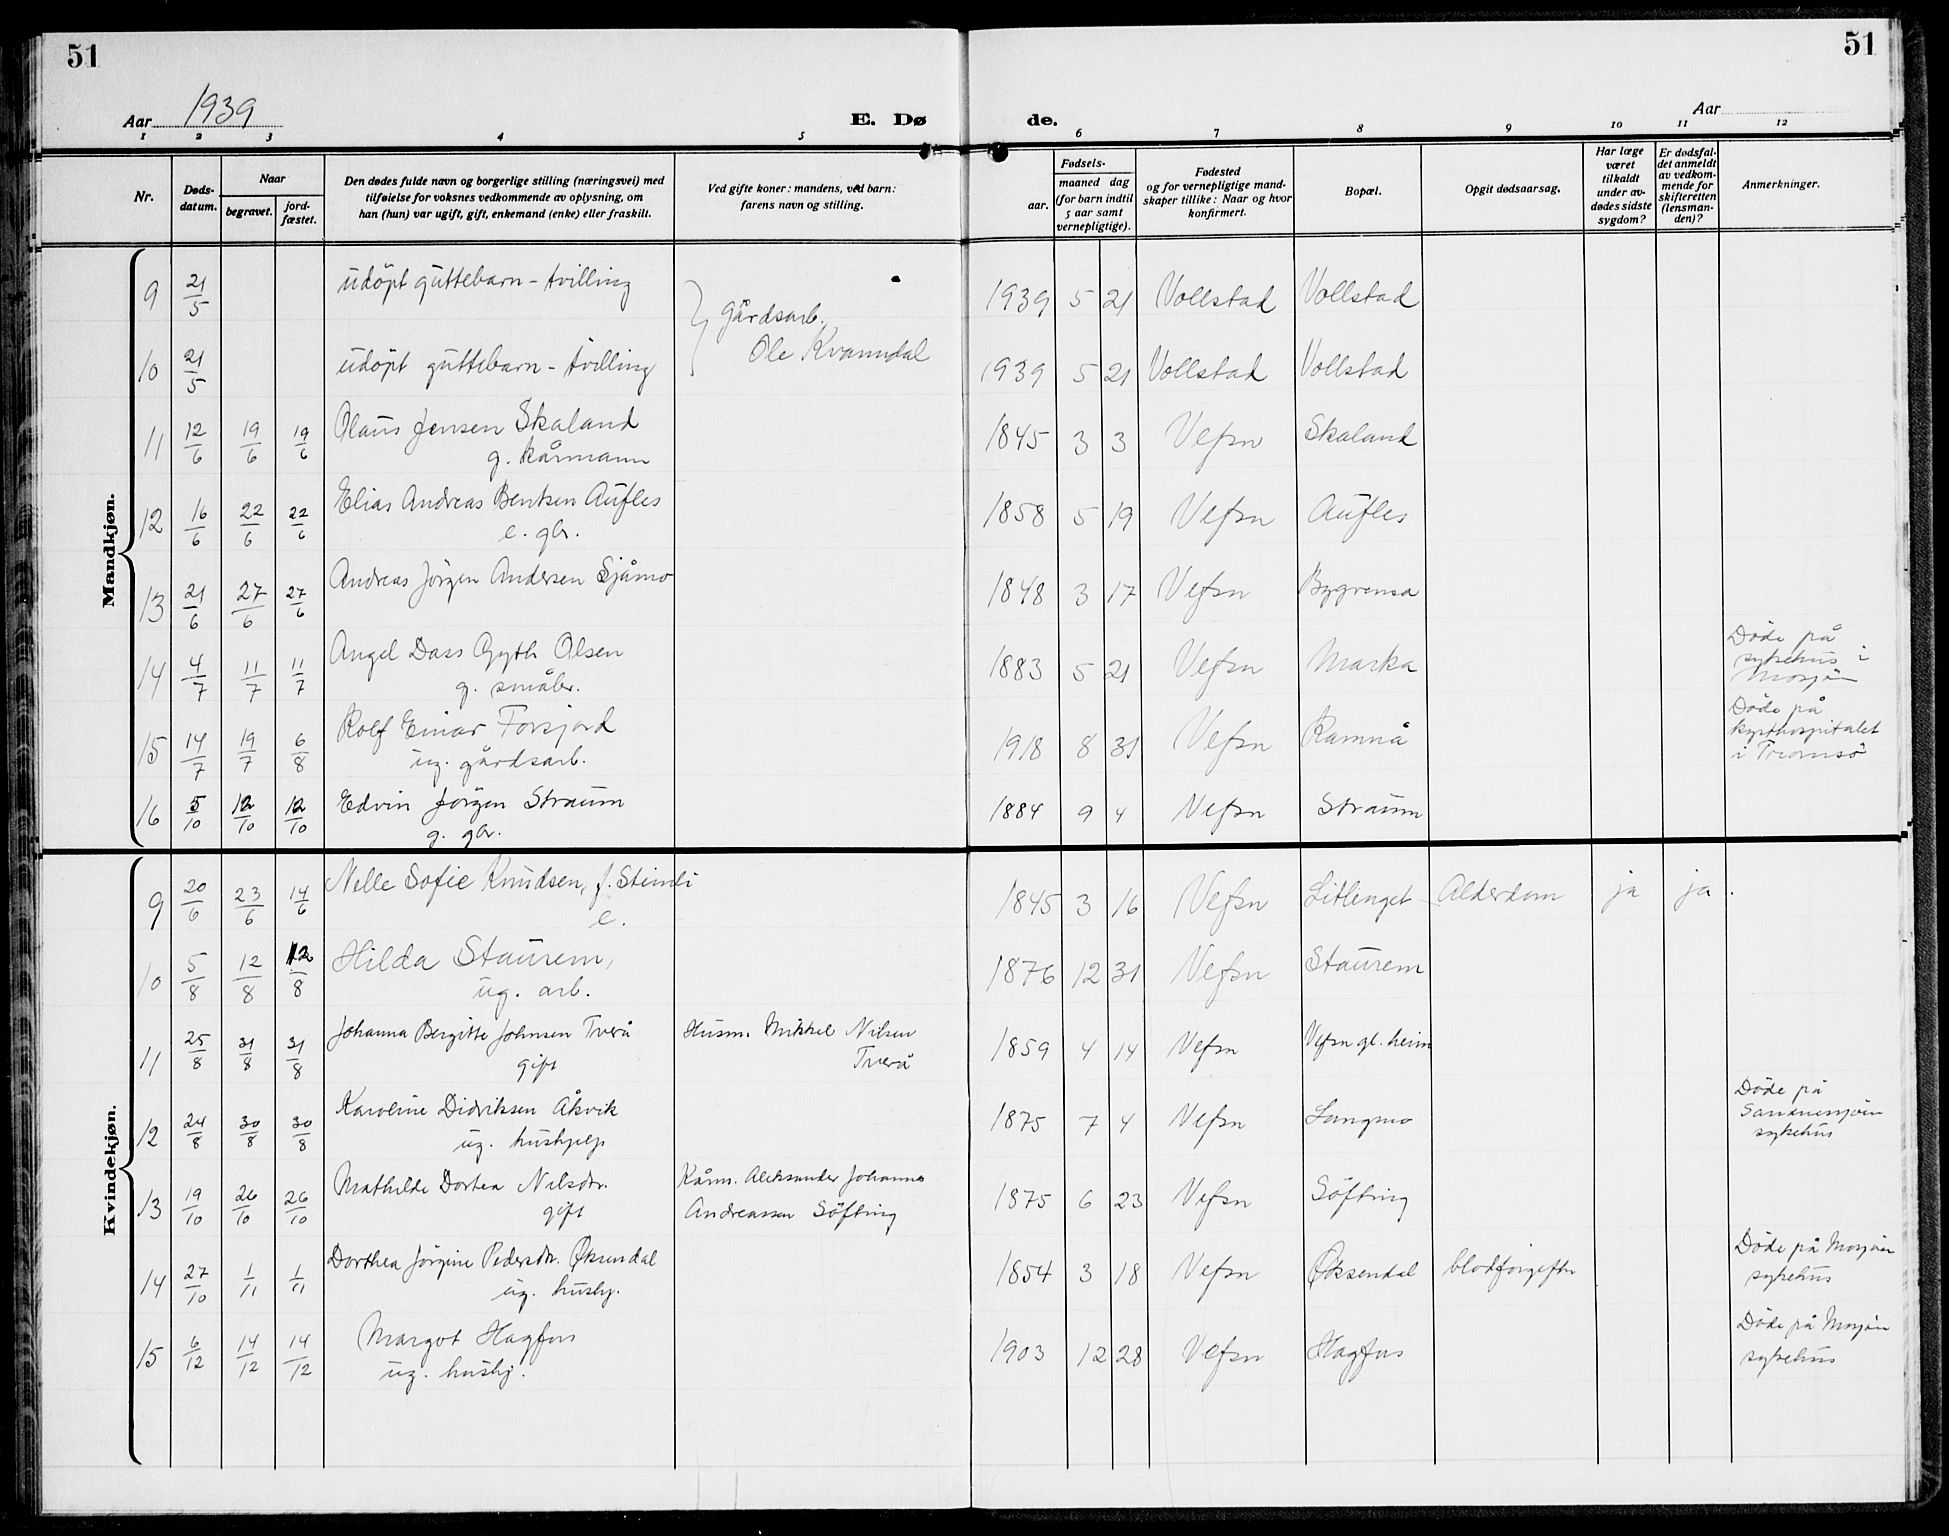 51
51
Aar 1939
E. Dø
de.
Aar
1 2 3 4 5 6 7 8 9 10 11 12
Nr.
Døds-
datum.
Naar
begravet.
jord-
fæstet.
Den dødes fulde navn og borgerlige stilling (næringsvei) med
tilføielse for voksnes vedkommende av oplysning, om
han (hun) var ugift, gift, enkemand (enke) eller fraskilt.
Ved gifte koner: mandens, ved barn:
farens navn og stilling.
Fødsels-
aar.
maaned dag
(for barn indtil
5 aar samt
vernepligtige).
Fødested
og for vernepligtige mand-
skaper tillike: Naar og hvor
konfirmert.
Bopæl.
Opgit dødsaarsag.
Har læge
været
tilkaldt
under av-
dødes sidste
sygdom?
Er dødsfal-
det anmeldt
av vedkom-
mende for
skifteretten
(lensman-
den)?
Anmerkninger.
Mandkjøn.
9 21/5 udöpt guttebarn - tvilling 1939 5 21 Vollstad Vollstad
Gårdsarb.
Ole Kvanndal
10 21/5 udöpt guttebarn - tvilling 1939 5 21 Vollstad Vollstad
11 12/6 19/6 19/6 Olaus Jensen Skaland 1845 3 3 Vefsn Skaland
g. kårmann
12 16/6 22/6 22/6 Elias Andreas Bentsen Aufles 1858 5 19 Vefsn Aufles
e. gbr.
13 21/6 27/6 27/6 Andreas Jörgen Andersen Sjåmo 1848 3 17 Vefsn Bygrensa
14 4/7 11/7 11/7 Angel Dass Gyth Olsen 1883 5 21 Vefsn Marka Döde på
sykehus i
Mosjöen
g. småbr.
15 14/7 19/7 6/8 Rolf Einar Forsjord 1918 8 31 Vefsn Ramnå Döde på
kysthospitalet
i Tromsö
ug. gårdsarb.
16 5/10 12/10 12/10 Edvin Jörgen Straum 1884 9 4 Vefsn Straum
g. gbr.
Kvindekjøn.
9 20/6 23/6 14/6 Nelle Sofie Knudsen, f. 1845 3 16 Vefsn Litlenget Alderdom ja ja.
e.
10 5/8 12/8 12/8 Hilda Staurem, 1876 12 31 Vefsn Staurem
ug. arb.
11 25/8 31/8 31/8 Johanna Bergitte Johnsen Tverå Husm. Mikkel Nilsen 1859 4 14 Vefsn Vefsn gl. heim
gift Tverå
12 24/8 30/8 30/8 Karoline Didriksen Åkvik 1875 7 4 Vefsn Langmo Döde på
Sandnessjöen
sykehus
ug. hushjelp
13 19/10 26/10 26/10 Mathilde Dortea Nilsdtr. Kårm. Aleksander Johannes 1875 6 23 Vefsn Söfting
gift Andreassen Söfting
14 27/10 1/11 1/11 Dorthea Jörgine Pedersdtr. Øksendal 1854 3 18 Vefsn Øksendal blodforgiftn Döde på Mosjöen
sykehus
ug. hushj.
15 6/12 14/12 14/12 Margot Hagfors 1903 12 28 Vefsn Hagfors Döde på Mosjöen
sykehus
ug. hushj.